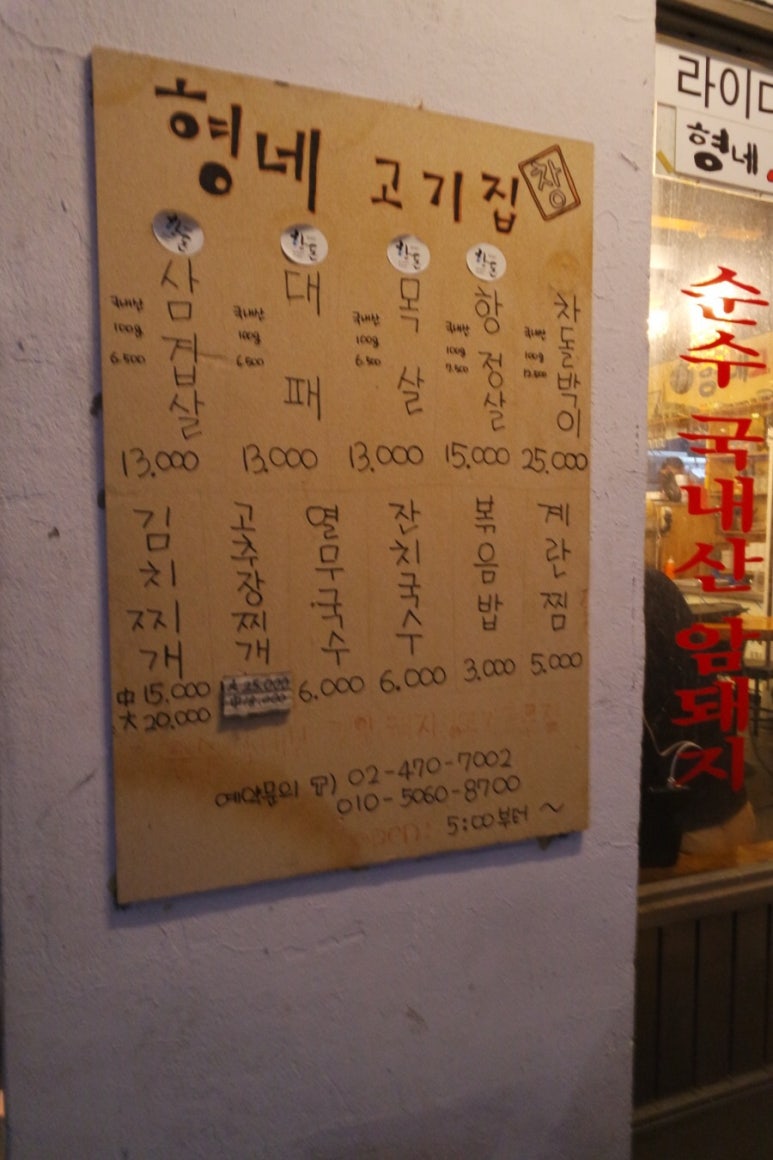 형네 고기집 장
삼겹살
국내산
100g
6.500
13.000
대패
국내산
100g
6.500
13.000
목살
국내산
100g
6.500
13.000
항정살
국내산
100g
7.500
15.000
차돌박이
국내산
100g
12.500
25.000
김치찌개
中 15.000
大 20.000
고추장찌개
大 25.000
열무국수
6.000
잔치국수
6.000
볶음밥
3.000
계란찜
5.000
예약문의 T) 02-470-7002
010-5060-8700
5:00부터 ~
형네
순수 국내산 암돼지